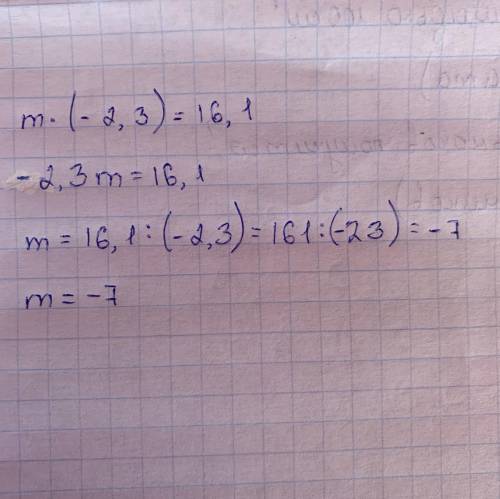 m · (- 2, 3) = 16, 1
- 2, 3 m = 16, 1
m = 16, 1 : (- 2, 3) = 161 : (-23) = -7
m = -7